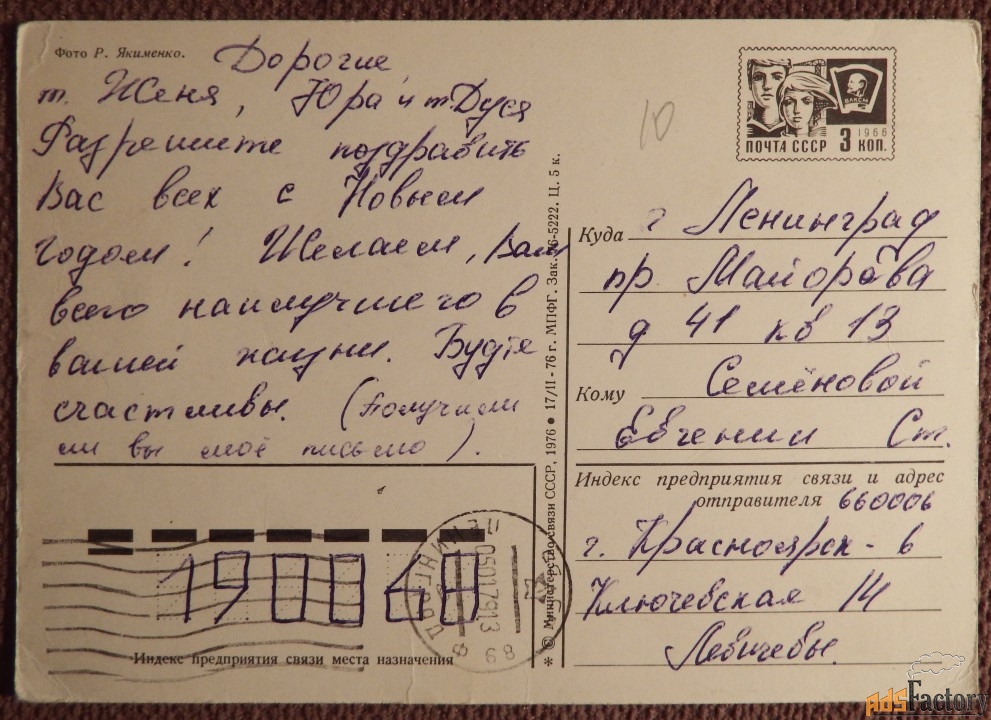 Фото Р. Якименко.
Дорогие
т. Женя, Юра и т. Дуся
Разрешите поздравить
Вас всех с Новым
годом! Желаем, Вам
всего наилучшего в
вашей жизни. Будте
счастливы. (Получили
ли вы моё письмо).
10
ВЛКСМ
1966
ПОЧТА СССР 3 КОП.
Куда г Ленинград
пр. Майорова
д 41 кв 13
Кому Семёновой
Евгении Ст.
Индекс предприятия связи и адрес
отправителя 660006
г. Красноярск - 6
Ключевская 14
190068
Индекс предприятия связи места назначения
* © Министерство связи СССР, 1976 • 17/II - 76 г. МПФГ. Зак. 76-5222. Ц. 5 к.
ЛЕНИНГРАД
AdsFactory